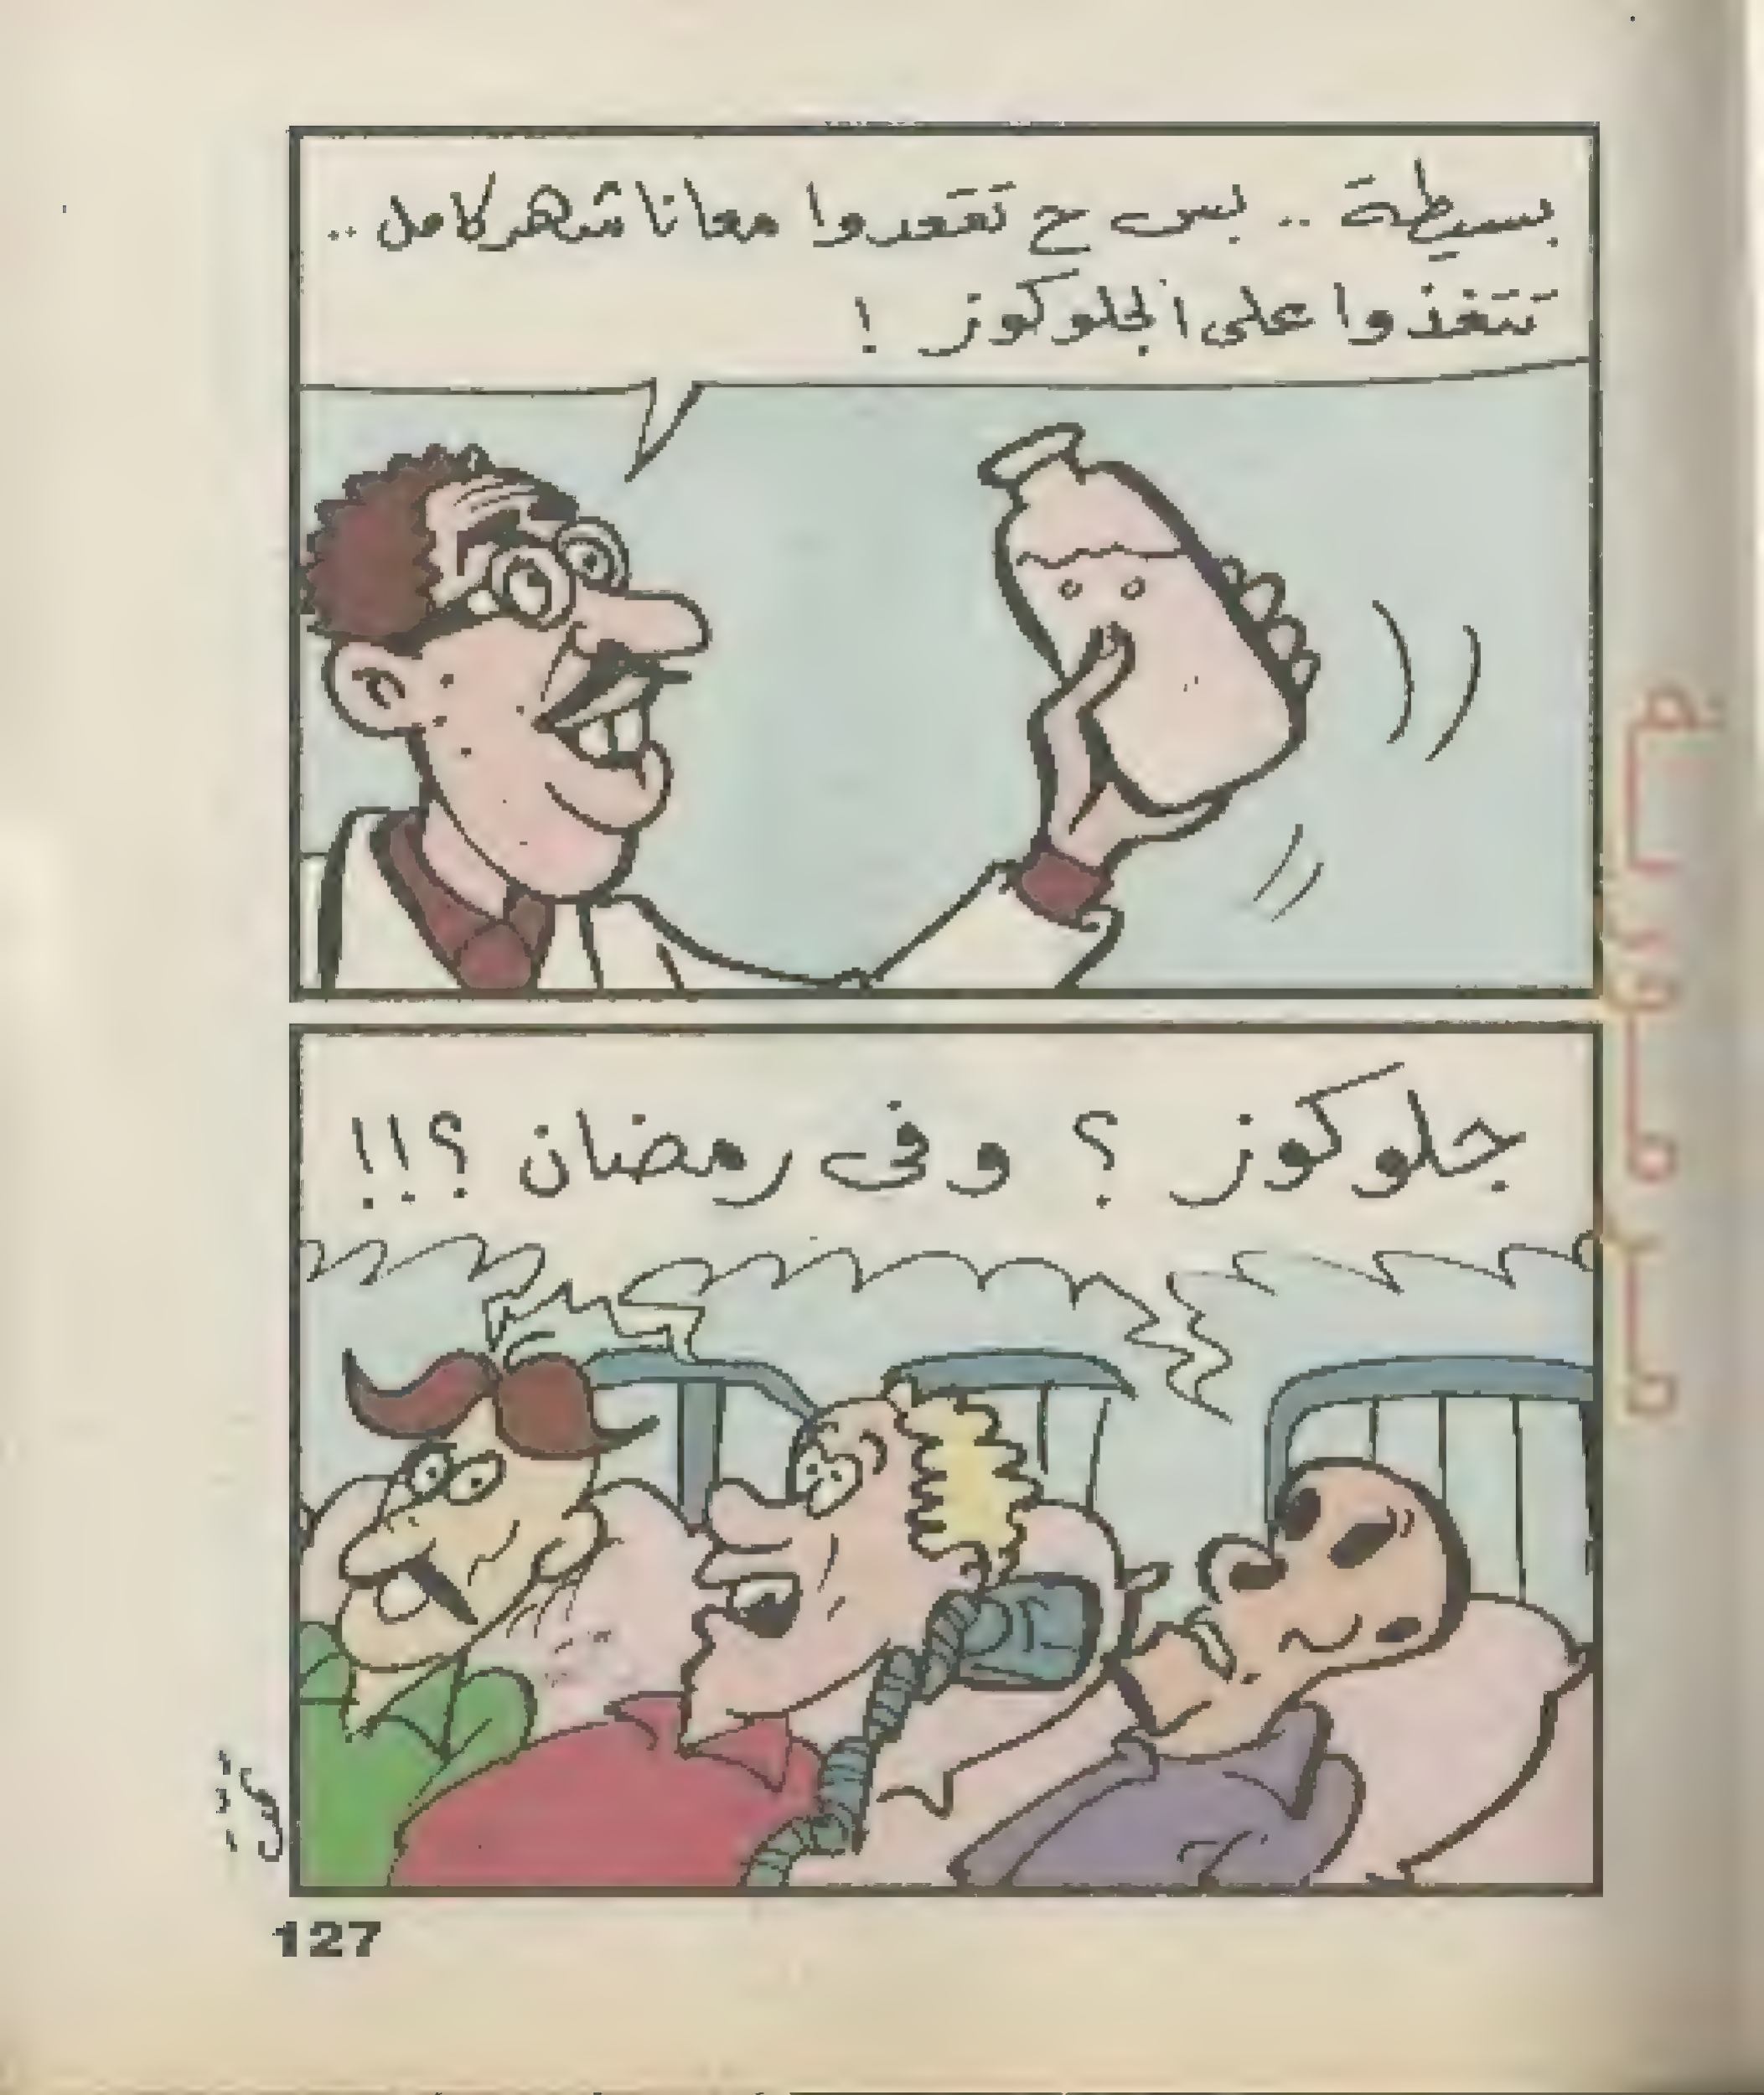 بسيطة .. بس ح تقعدوا معانا شهر كامل ..
تتغذوا على الجلوكوز !
جلوكوز ؟ وفى رمضان ؟!!
127